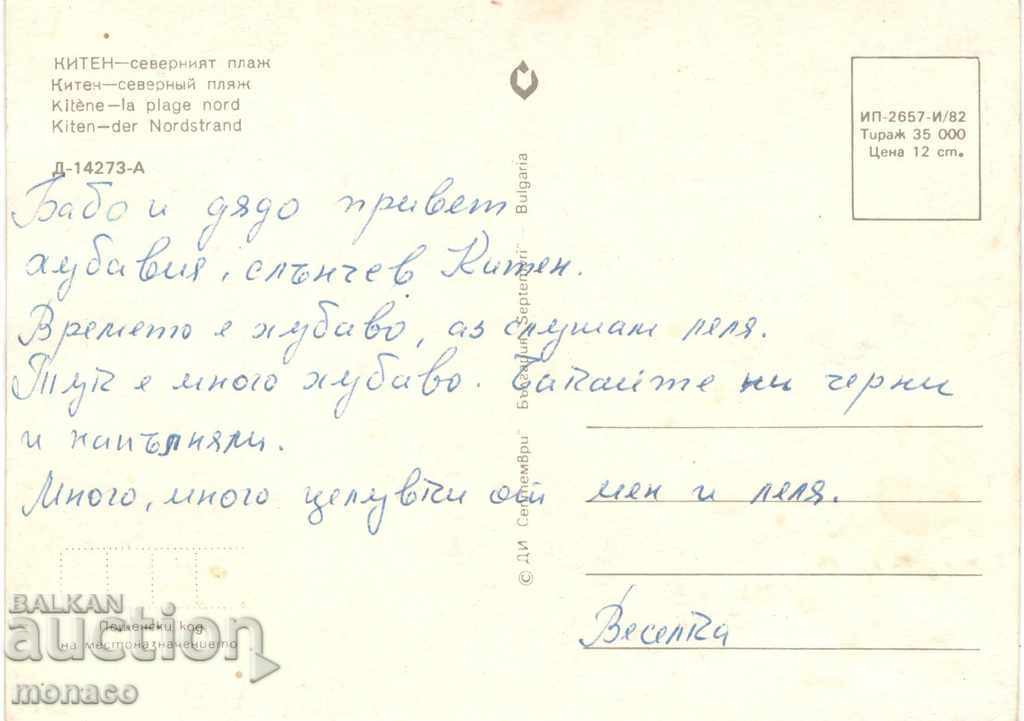 КИТЕН—северният плаж
Китен—северный пляж
Kitène—la plage nord
Kiten—der Nordstrand
Д-14273-А
ИП-2657-И/82
Тираж 35 000
Цена 12 ст.
© ДИ „Септември" България „Septemvri" — Bulgaria
Бабо и дядо привет
хубавия, слънчев Китен.
Времето е хубаво, аз слушам леля.
Тук е много хубаво. Чакайте ни черни
и напълняли.
Много, много целувки от мен и леля.
Веселка
Пощенски код
на местоназначението
BALKAN
auction
monaco